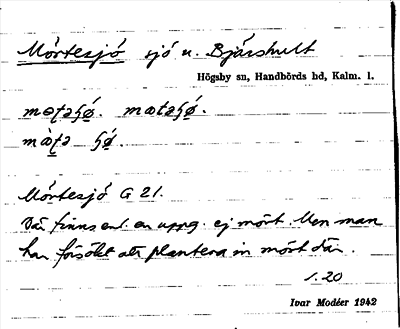 Mörtesjö sjö u. Bjärshult
Högsby sn, Handbörds hd, Kalm. l.
Mörtesjö G 21.
Där finns enl. en uppg. ej mört. Men man
har försökt att plantera in mört där.
1.20
Ivar Modéer 1942